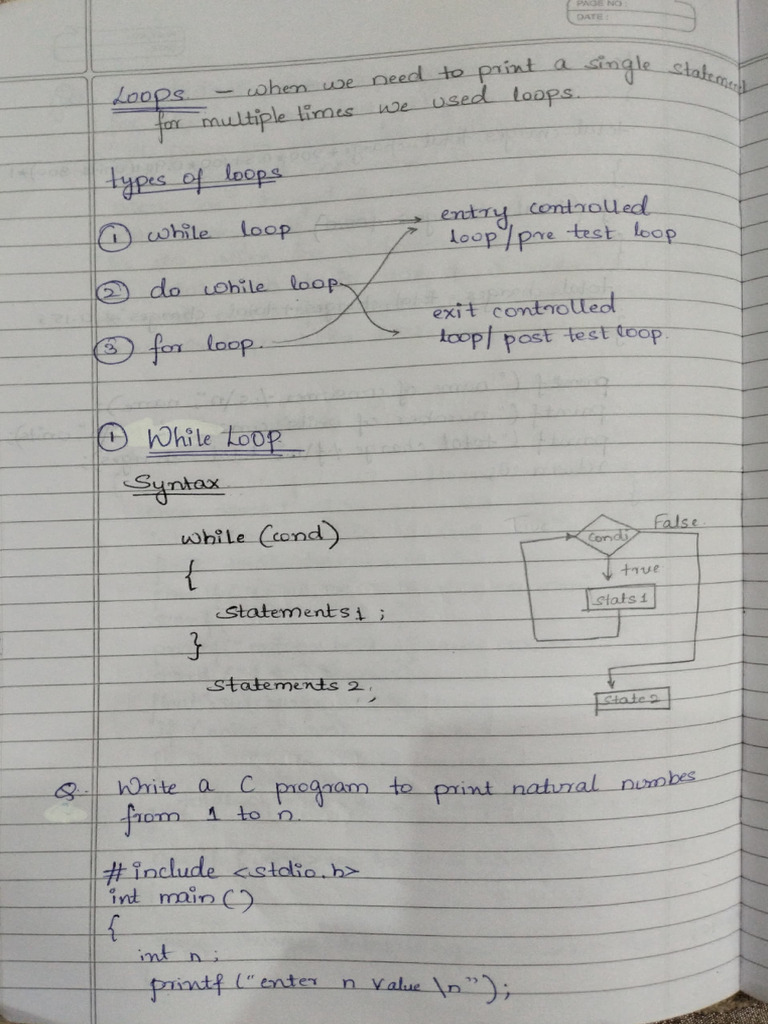 PAGE NO :
DATE :
Loops - when we need to print a single statement
for multiple times we used loops.
types of loops
① while loop
entry controlled
loop/pre test loop
② do while loop
exit controlled
loop/ post test loop.
③ for loop.
① While Loop
Syntax
while (cond)
{
statements1 ;
}
statements 2;
condi
False.
true
stats1
state2
Q. Write a C program to print natural numbes
from 1 to n.
#include <stdio.h>
int main ()
{
int n ;
printf ("enter n value \n");